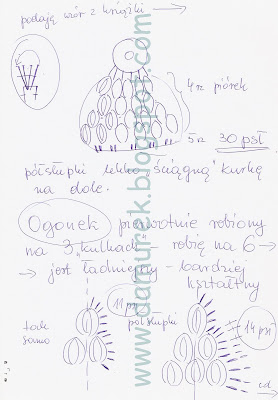 podaję wzór z książki →
4 rz piórek
5 rz 30 psł
półsłupki lekko "ściągną" kurkę
na dole.
Ogonek pierwotnie robiony
na 3 "kulkach" - robię na 6 →
→ jest ładniejszy - bardziej
kształtny
11 psł
tak
samo
półsłupki
14 psł
cd
www.damurek.blogspot.com